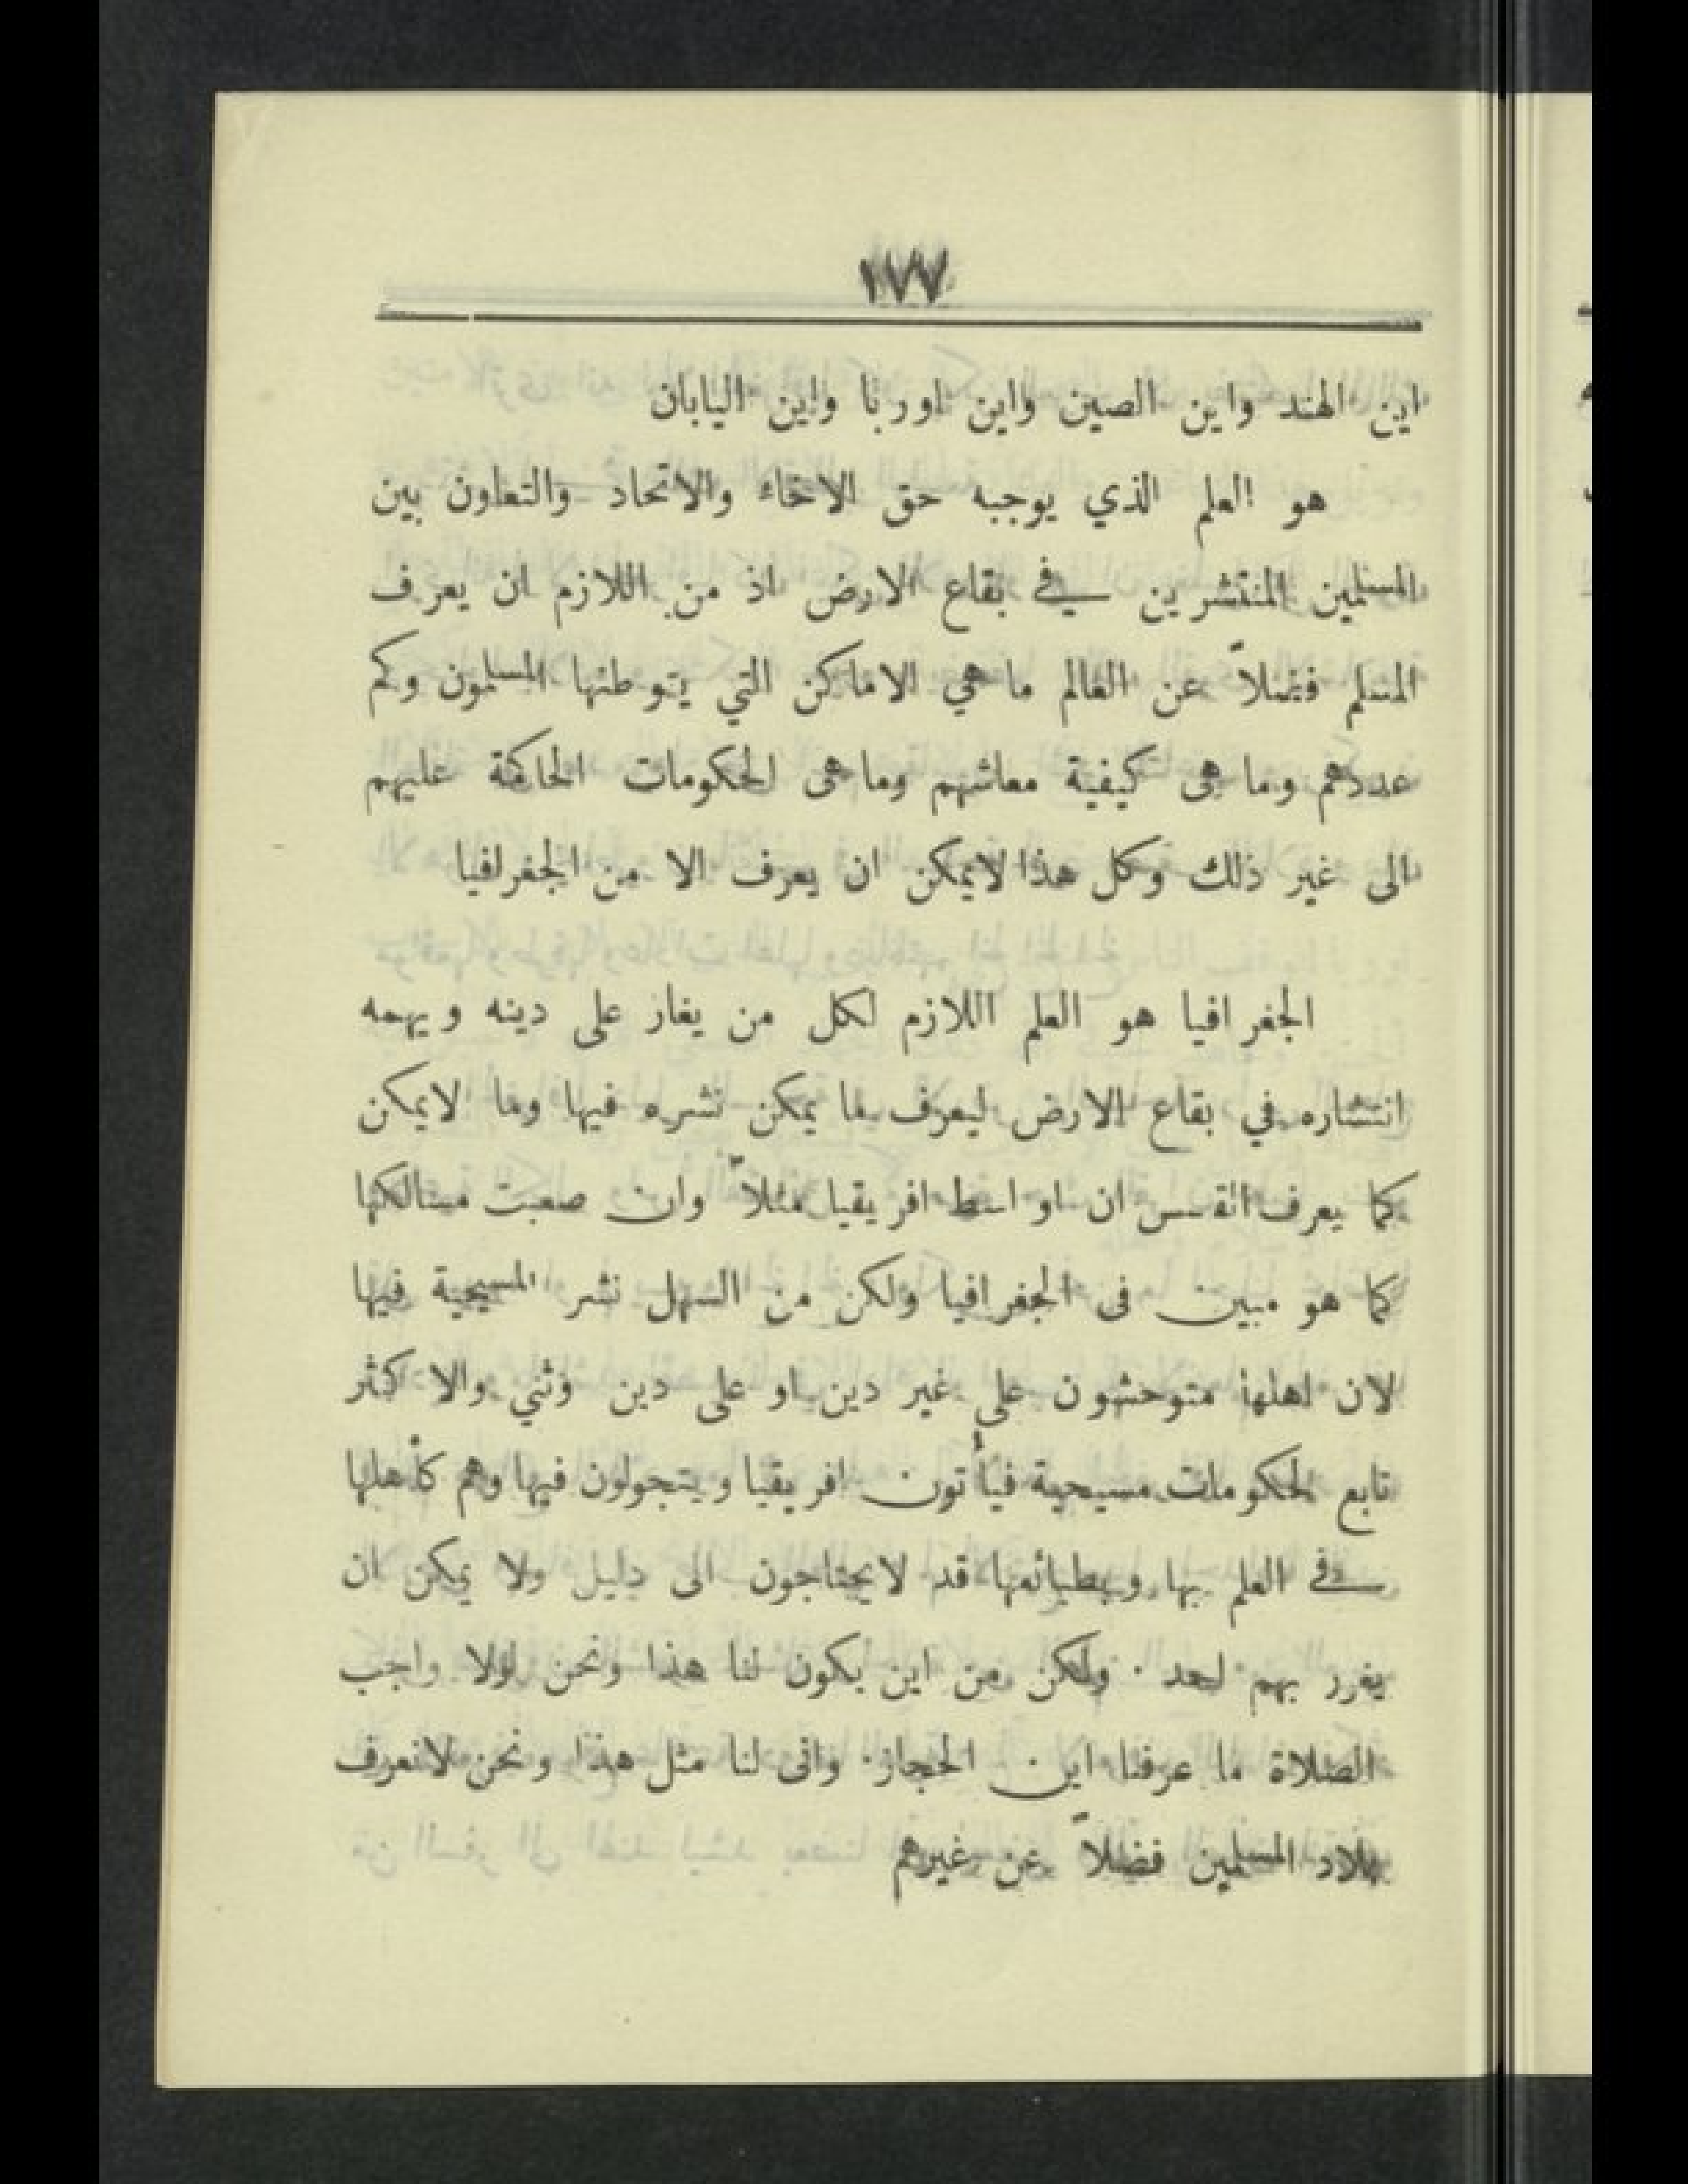 ١٧٧
اين الهند واين الصين واين اوربا واين اليابان
هو العلم الذي يوجبه حق الاخاء والاتحاد والتعاون بين
المسلمين المنتشرين في بقاع الارض اذ من اللازم ان يعرف
المسلم فضلاً عن العالم ما هي الاماكن التي يتوطنها المسلمون وكم
عددهم وما هى كيفية معاشهم وما هى الحكومات الحاكمة عليهم
الى غير ذلك وكل هذا لايمكن ان يعرف الا من الجغرافيا
الجغرافيا هو العلم اللازم لكل من يغار على دينه ويهمه
انتشاره في بقاع الارض ليعرف ما يمكن نشره فيها وما لايمكن
كما يعرف القسس ان اواسط افريقيا مثلاً وان صعبت مسالكها
كما هو مبين فى الجغرافيا ولكن من السهل نشر المسيحية فيها
لان اهلها متوحشون على غير دين او على دين وثني والاكثر
تابع لحكومات مسيحية فيأتون افريقيا ويتجولون فيها وهم كأهلها
في العلم بها وبطبائعها قد لايحتاجون الى دليل ولا يمكن ان
يغرر بهم احد ٠ ولكن من اين يكون لنا هذا ونحن لولا واجب
الصلاة ما عرفنا اين الحجاز ٠ وانى لنا مثل هذا ونحن لانعرف
بلاد المسلمين فضلاً عن غيرهم